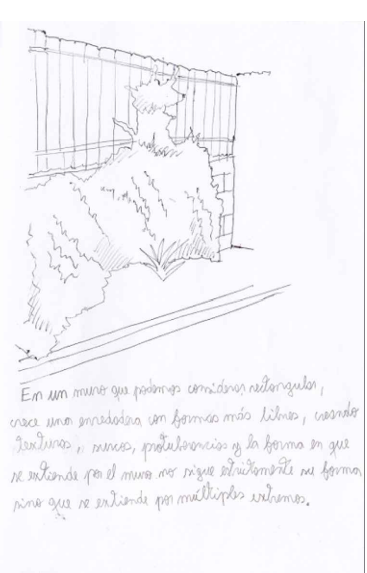 En un muro que podemos considerar rectangular,
crece una enredadera con formas más libres, creando
texturas, surcos, protuberancias y la forma en que
se extiende por el muro no sigue estrictamente su forma
sino que se extiende por múltiples extremos.